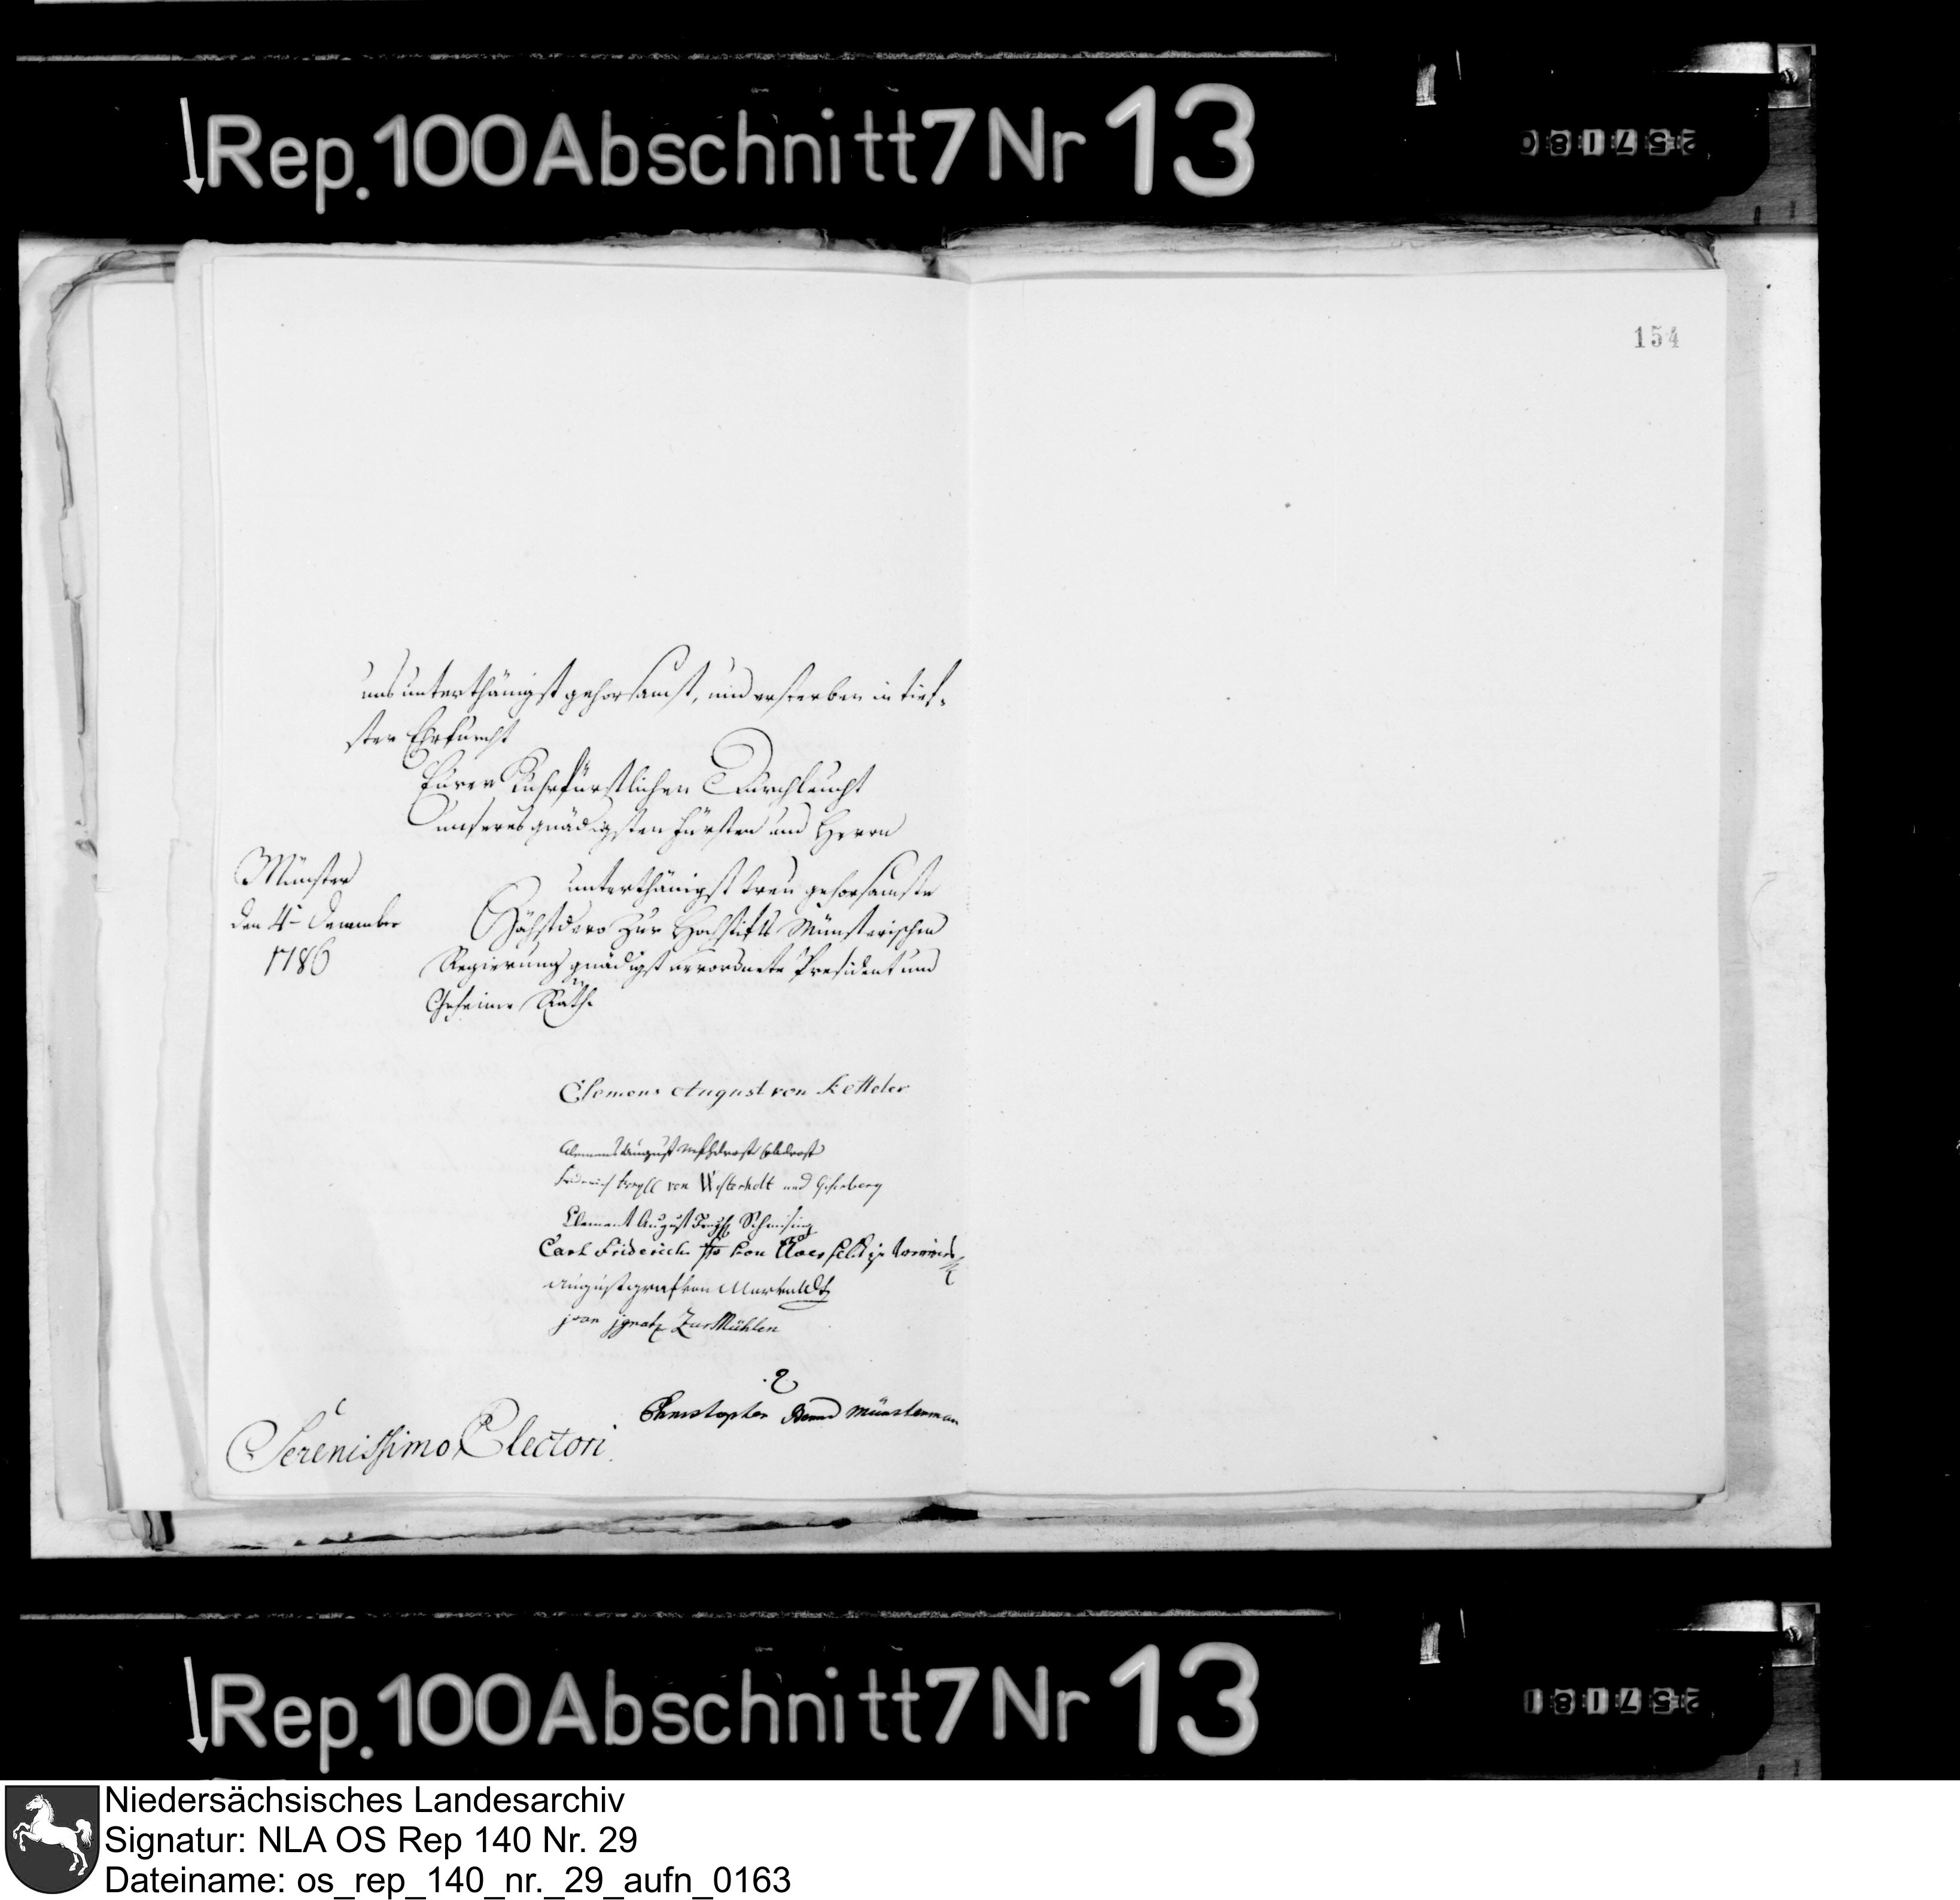 Rep. 100 Abschnitt 7 Nr 13
257180
154
uns unterthänigst gehorsamst, und ersterben in tief-
ster Ehrfurcht
Eurer Kuhrfürstlichen Durchleucht
unseres gnädigsten Fürsten und Herrn
Münster
den 4t December
1786
unterthänigst treu gehorsamste
Höchstdero zur Hochstifts Münsterischen
Regierung gnädigst verordnete President und
Geheime Räthe
Clemens August von Ketteler
Clemens August Erbdrost
Friderich von Westerholt und Gysenberg
Clement August Schmising
Carl Friderich von
August graf von Merveldt
joan jgnatz Zur Mühlen
Christopher Bernd Münsterman
Serenissimo Electori.
Rep. 100 Abschnitt 7 Nr 13
257181
Niedersächsisches Landesarchiv
Signatur: NLA OS Rep 140 Nr. 29
Dateiname: os_rep_140_nr._29_aufn_0163